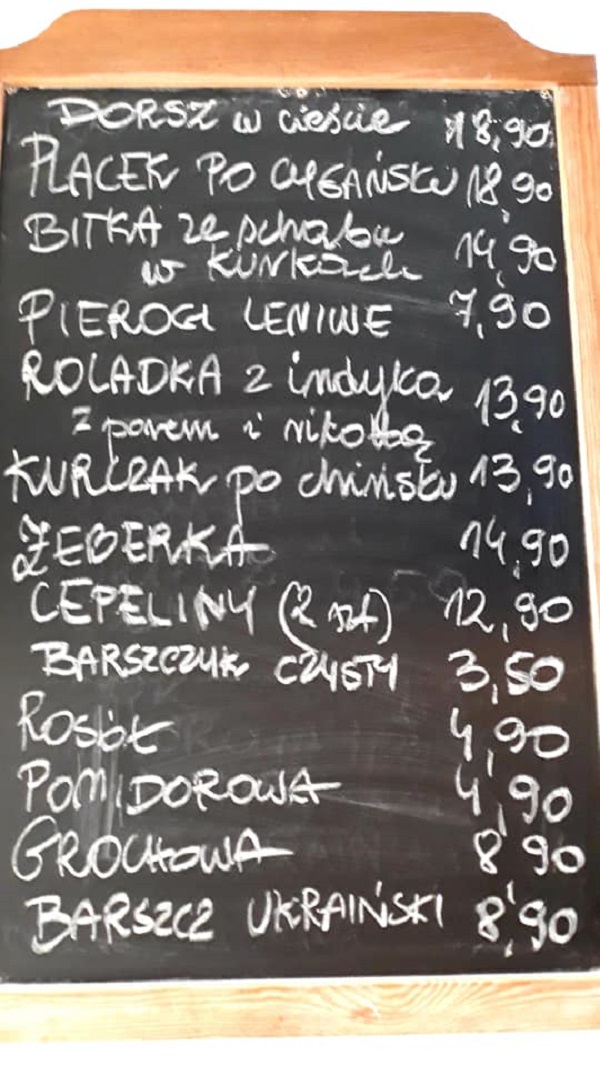 DORSZ w cieście 18,90
PLACEK PO CYGAŃSKU 18,90
BITKA ze schabu
w KURKACH 14,90
PIEROGI LENIWE 7,90
ROLADKA z indyka 13,90
z porem i rikottą
KURCZAK po chińsku 13,90
ŻEBERKA 14,90
CEPELINY (2 szt) 12,90
BARSZCZYK CZYSTY 3,50
ROSÓŁ 4,90
POMIDOROWA 4,90
GROCHOWA 8,90
BARSZCZ UKRAIŃSKI 8,90